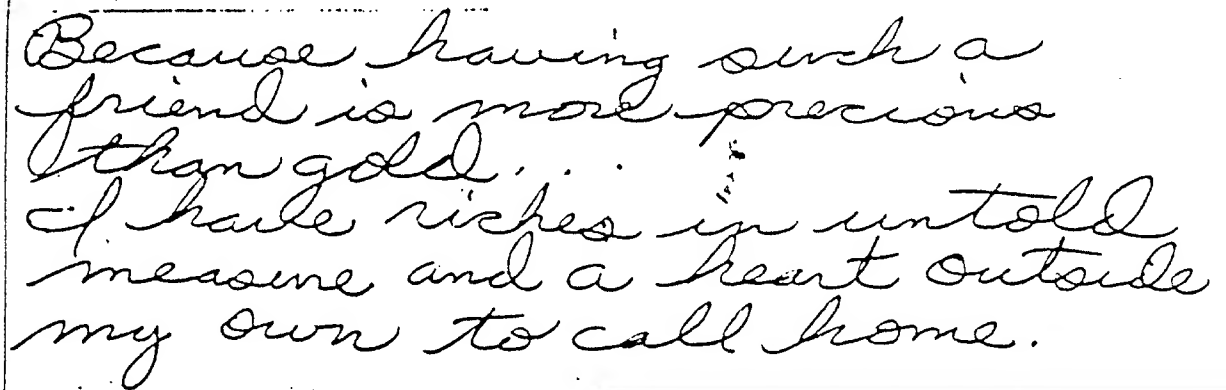 Because having such a
friend is more precious
than gold...
I have riches in untold
measure and a heart outside
my own to call home.